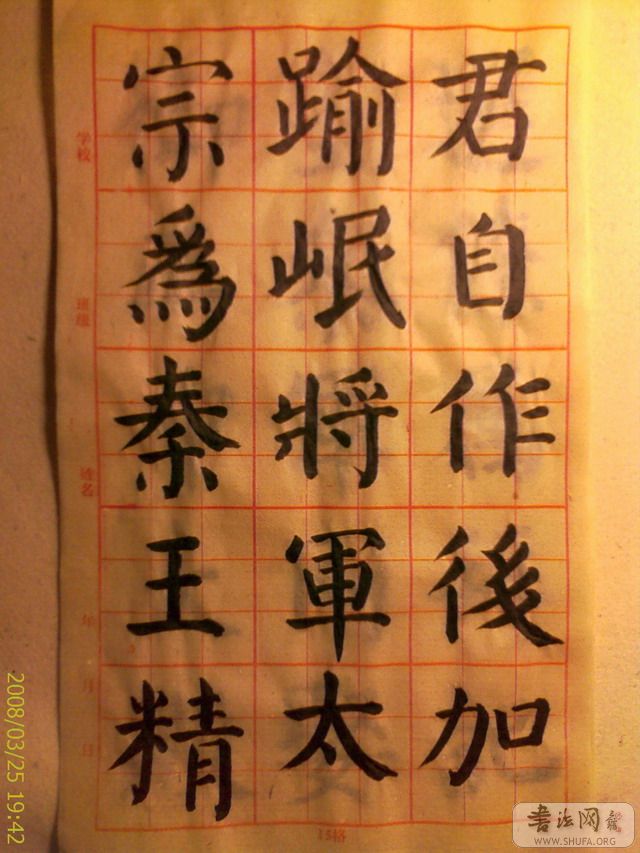 君自作後加
踰岷將軍太
宗爲秦王精
学校
班级
姓名
年
月
日
15格
2008/03/25 19:42
书法网
WWW.SHUFA.ORG